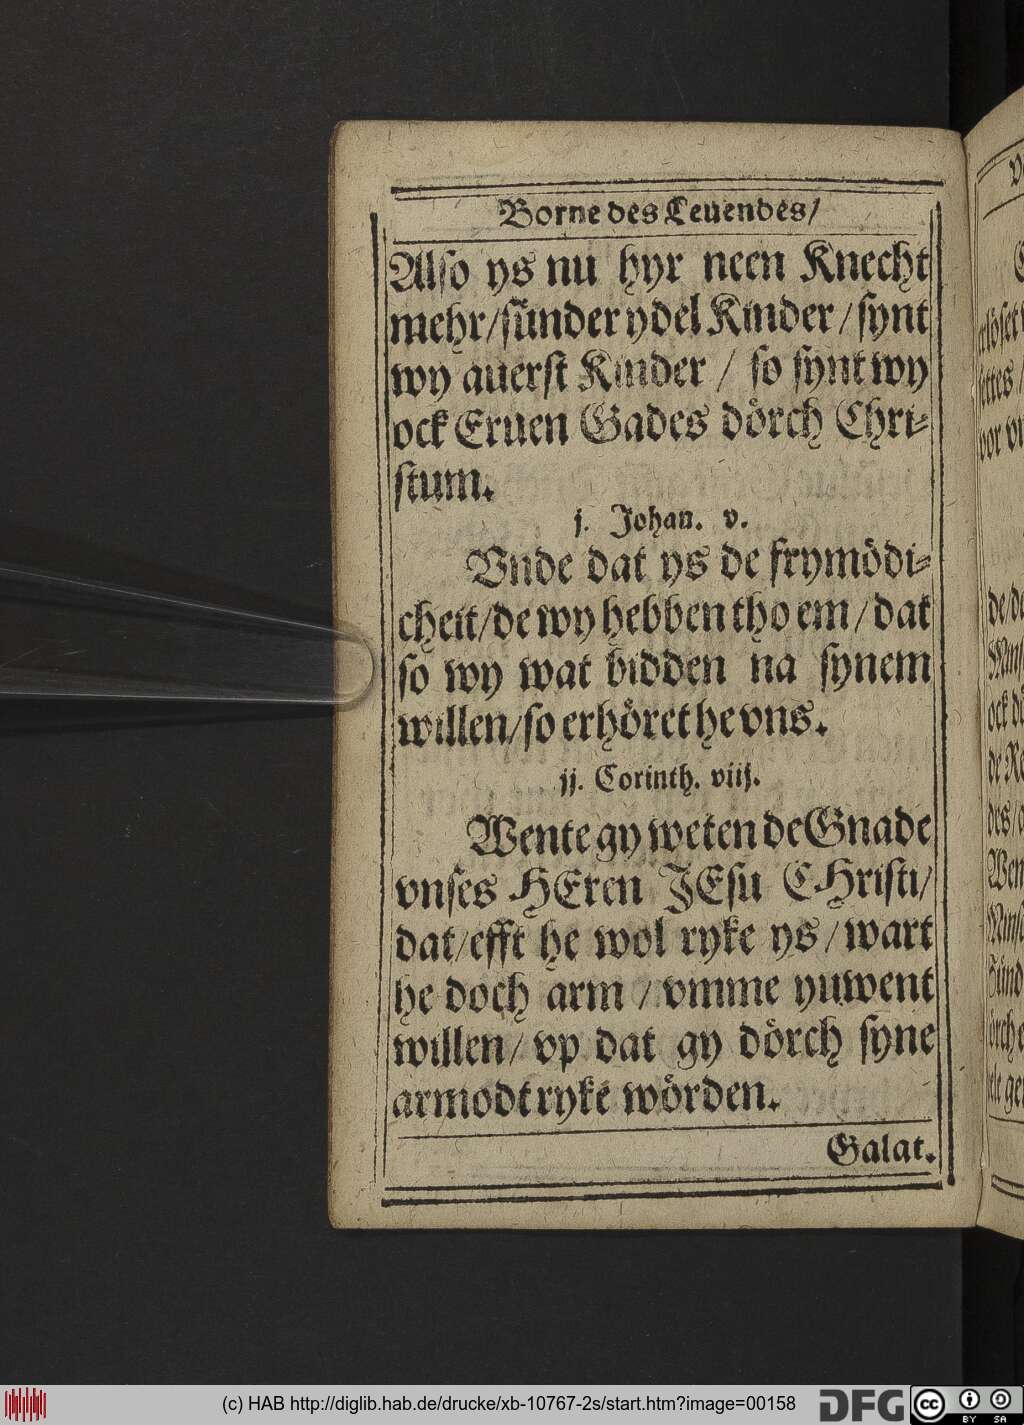 Borne des Leuendes/
Also ys nu hyr neen Knecht
mehr/sünder ydel Kinder/synt
wy auerst Kinder / so synt wy
ock Eruen Gades dörch Chri-
stum.
j. Johan. v.
Vnde dat ys de frymödi-
cheit/de wy hebben tho em/dat
so wy wat bidden na synem
willen/so erhöret he vns.
jj. Corinth. viij.
Wente gy weten de Gnade
vnses HEren JEsu CHristi/
dat/efft he wol ryke ys/wart
he doch arm / vmme yuwent
willen/ vp dat gy dörch syne
armodt ryke wörden.
Galat.
(c) HAB http://diglib.hab.de/drucke/xb-10767-2s/start.htm?image=00158
DFG
cc BY SA